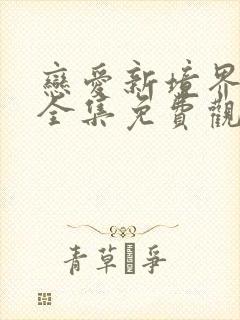 戀愛新境界
全集免費觀
青草�爭